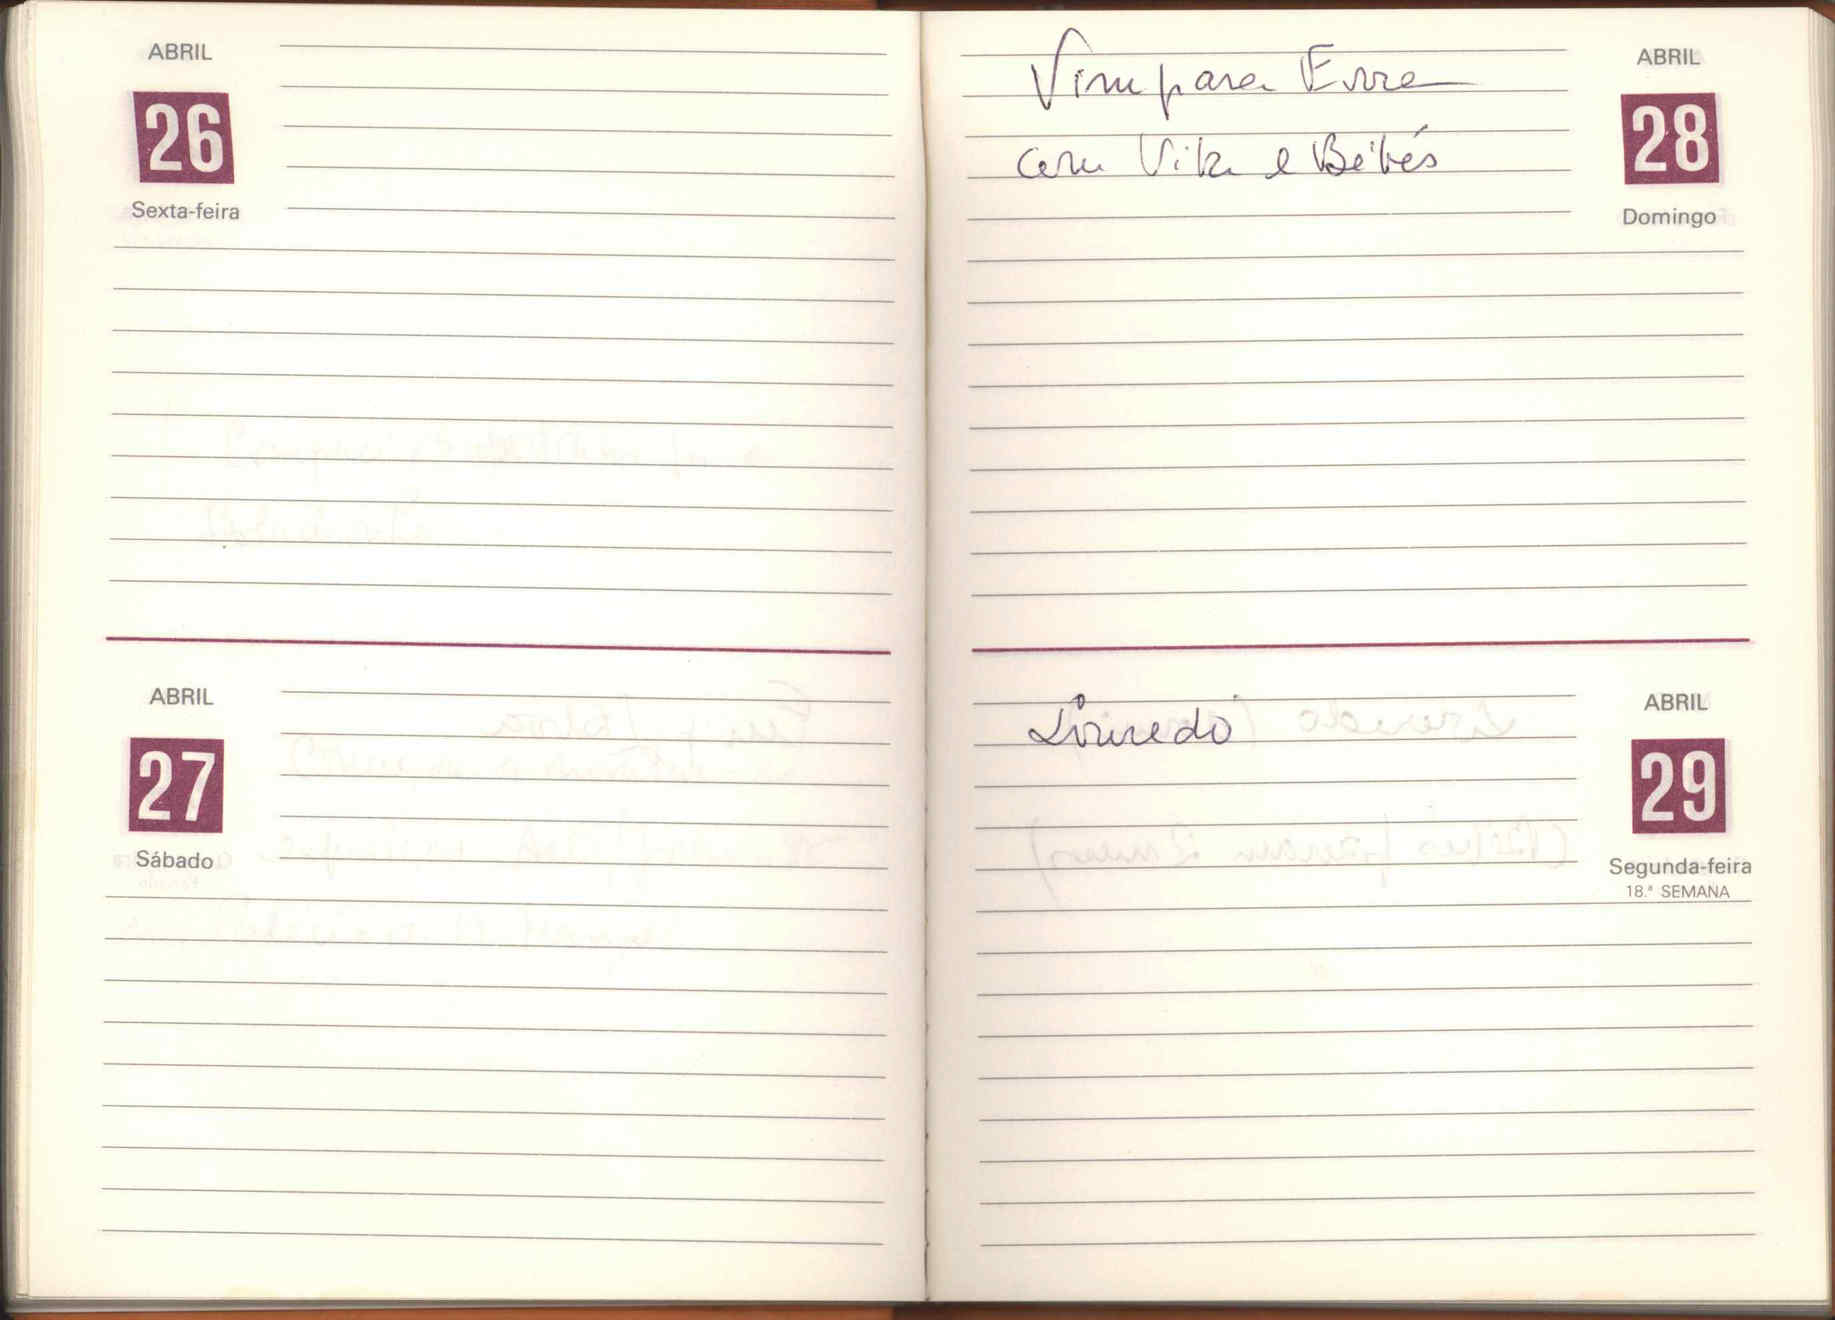 ABRIL
26
Sexta-feira
ABRIL
27
Sábado
Vim para Evre
com Vita e Bébés
ABRIL
28
Domingo
Louredo
ABRIL
29
Segunda-feira
18.ª SEMANA